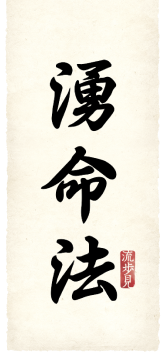 湧命法
流歩見